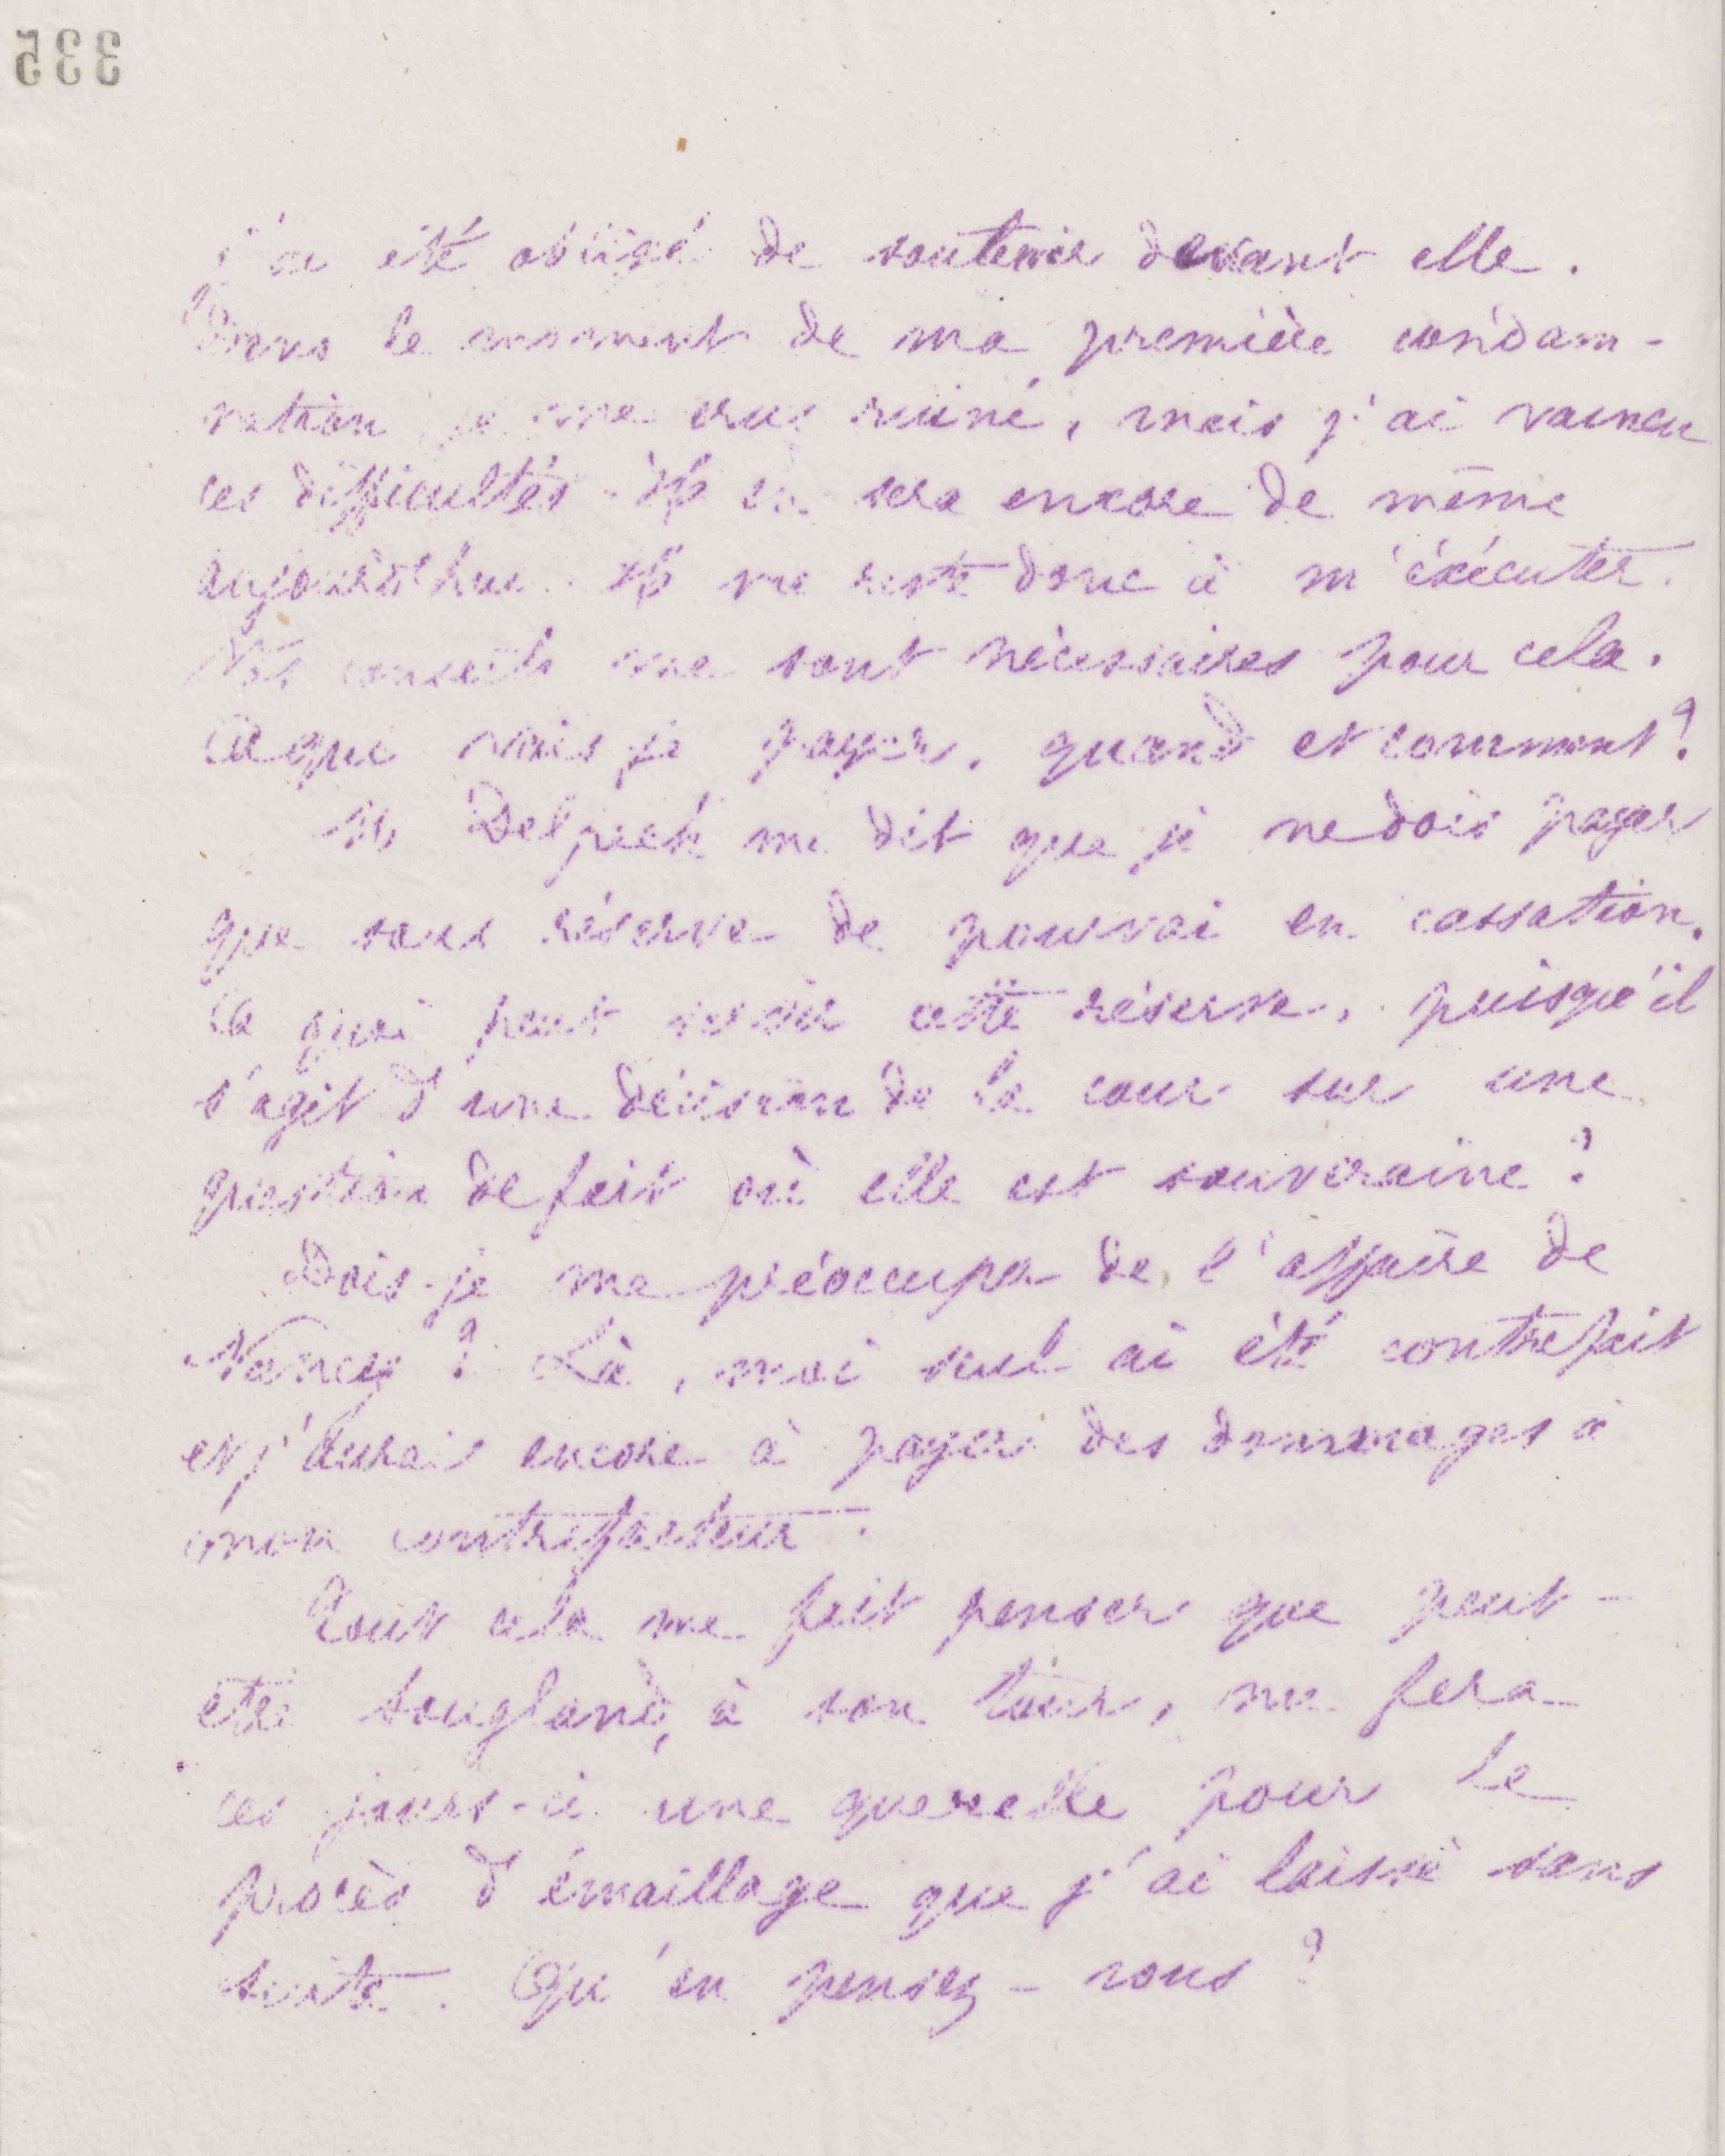 335
j'ai été obligé de soutenir devant elle.
Dans le moment de ma première condam-
nation je me crus ruiné, mais j'ai vaincu
ces difficultés. Il en sera encore de même
aujourd'hui. Il me reste donc à m'éxécuter.
Vos conseils me sont nécessaires pour cela.
Ce que vais je payer, quand et comment?
M Delpech me dit que je ne dois payer
que sous réserve de pourvoi en cassation.
à quoi peut servir cette réserve, puisqu'il
s'agit d'une décision de la cour sur une
question de fait où elle est souveraine?
Dois-je me préoccuper de l'affaire de
Nancy? Là, moi seul ai été contrefait
et j'aurais encore à payer des dommages à
mon contrefacteur.
Tout cela me fait penser que peut-
être Sougland, à son tour, me fera
ces jours-ci une querelle pour le
procès d'émaillage que j'ai laissé sans
suite. Qu'en pensez-vous?